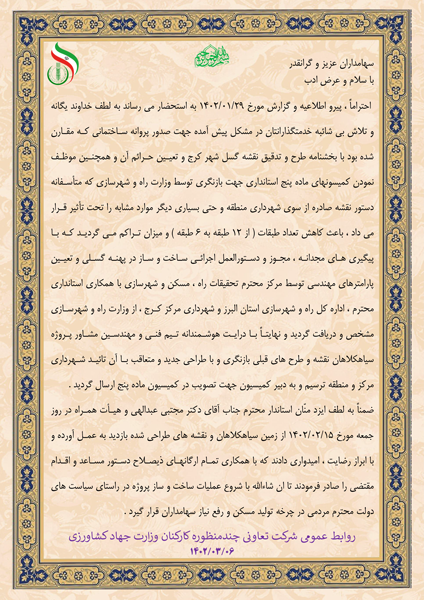 سهامداران عزیز و گرانقدر
با سلام و عرض ادب
احتراماً ، پیرو اطلاعیه و گزارش مورخ ۱۴۰۲/۰۱/۲۹ به استحضار می رساند به لطف خداوند یگانه
و تلاش بی شائبه خدمتگذارانتان در مشکل پیش آمده جهت صدور پروانه ساختمانی که مقارن
شده بود با بخشنامه طرح و تدقیق نقشه گسل شهر کرج و تعیین حرائم آن و همچنین موظف
نمودن کمیسونهای ماده پنج استانداری جهت بازنگری توسط وزارت راه و شهرسازی که متأسفانه
دستور نقشه صادره از سوی شهرداری منطقه و حتی بسیاری دیگر موارد مشابه را تحت تأثیر قرار
می داد ، باعث کاهش تعداد طبقات ( از ۱۲ طبقه به ۶ طبقه ) و میزان تراکم می گردید که با
پیگیری های مجدانه ، مجوز و دستورالعمل اجرائی ساخت و ساز در پهنه گسلی و تعیین
پارامترهای مهندسی توسط مرکز محترم تحقیقات راه ، مسکن و شهرسازی با همکاری استانداری
محترم ، اداره کل راه و شهرسازی استان البرز و شهرداری مرکز کرج ، از وزارت راه و شهرسازی
مشخص و دریافت گردید و نهایتاً با درایت هوشمندانه تیم فنی و مهندسین مشاور پروژه
سیاهکلاهان نقشه و طرح های قبلی بازنگری و با طراحی جدید و متعاقب با آن تائید شهرداری
مرکز و منطقه ترسیم و به دبیر کمیسیون جهت تصویب در کمیسیون ماده پنج ارسال گردید .
ضمناً به لطف ایزد منّان استاندار محترم جناب آقای دکتر مجتبی عبدالهی و هیأت همراه در روز
جمعه مورخ ۱۴۰۲/۰۲/۱۵ از زمین سیاهکلاهان و نقشه های طراحی شده بازدید به عمل آورده و
با ابراز رضایت ، امیدواری دادند که با همکاری تمام ارگانهای ذیصلاح دستور مساعد و اقدام
مقتضی را صادر فرمودند تا ان شاءالله با شروع عملیات ساخت و ساز پروژه در راستای سیاست های
دولت محترم مردمی در چرخه تولید مسکن و رفع نیاز سهامداران قرار گیرد .
روابط عمومی شرکت تعاونی چندمنظوره کارکنان وزارت جهاد کشاورزی
۱۴۰۲/۰۳/۰۶